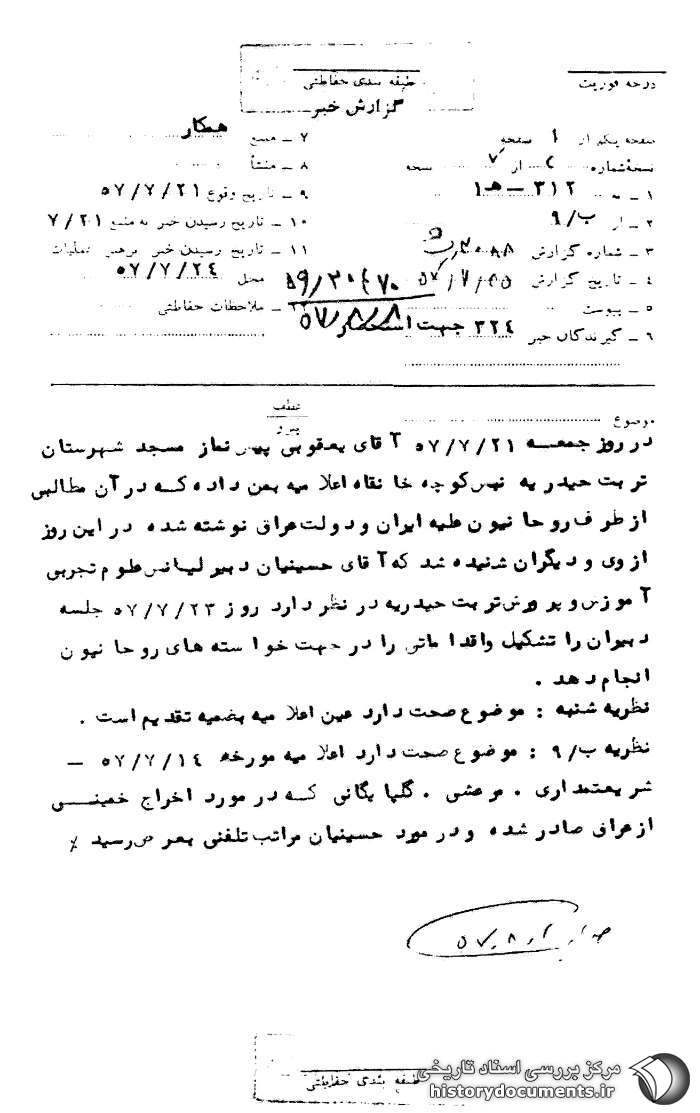 درجه فوریت
طبقه بندی حفاظتی
گزارش خبر
صفحه یکم از ۱ صفحه
نسخه شماره ۲ از ۷ نسخه
۱ ـ به ۳۱۲ ـ ه‍ ۱
۲ ـ از ۹/ب
۳ ـ شماره گزارش
۴ ـ تاریخ گزارش
۵ ـ پیوست
۶ ـ گیرندگان خبر ۳۲۴ جهت استحضار
۷ ـ منبع همکار
۸ ـ منشأ
۹ ـ تاریخ وقوع ۵۷/۷/۲۱
۱۰ ـ تاریخ رسیدن خبر به منبع ۷/۲۱
۱۱ ـ تاریخ رسیدن خبر برهبر عملیات
محل ۵۷/۷/۲۴
ملاحظات حفاظتی
۵۷/۸/۸
موضوع
عطف
پیرو
در روز جمعه ۵۷/۷/۲۱ آقای یعقوبی پیش نماز مسجد شهرستان
تربت حیدریه نبش کوچه خانقاه اعلامیه بمن داده که در آن مطالبی
از طرف روحانیون علیه ایران و دولت عراق نوشته شده در این روز
از وی و دیگران شنیده شد که آقای حسینیان دبیر لیسانس علوم تجربی
آموزش و پرورش تربت حیدریه در نظر دارد روز ۵۷/۷/۲۳ جلسه
دبیران را تشکیل و اقداماتی را در جهت خواسته های روحانیون
انجام دهد .
نظریه شنبه : موضوع صحت دارد عین اعلامیه بضمیه تقدیم است .
نظریه ۹/ب : موضوع صحت دارد اعلامیه مورخه ۵۷/۷/۱۴ ـ
شریعتمداری . مرعشی . گلپایگانی که در مورد اخراج خمینی
از عراق صادر شده و در مورد حسینیان مراتب تلفنی بعرض رسید
طبقه بندی حفاظتی
مرکز بررسی اسناد تاریخی
historydocuments.ir